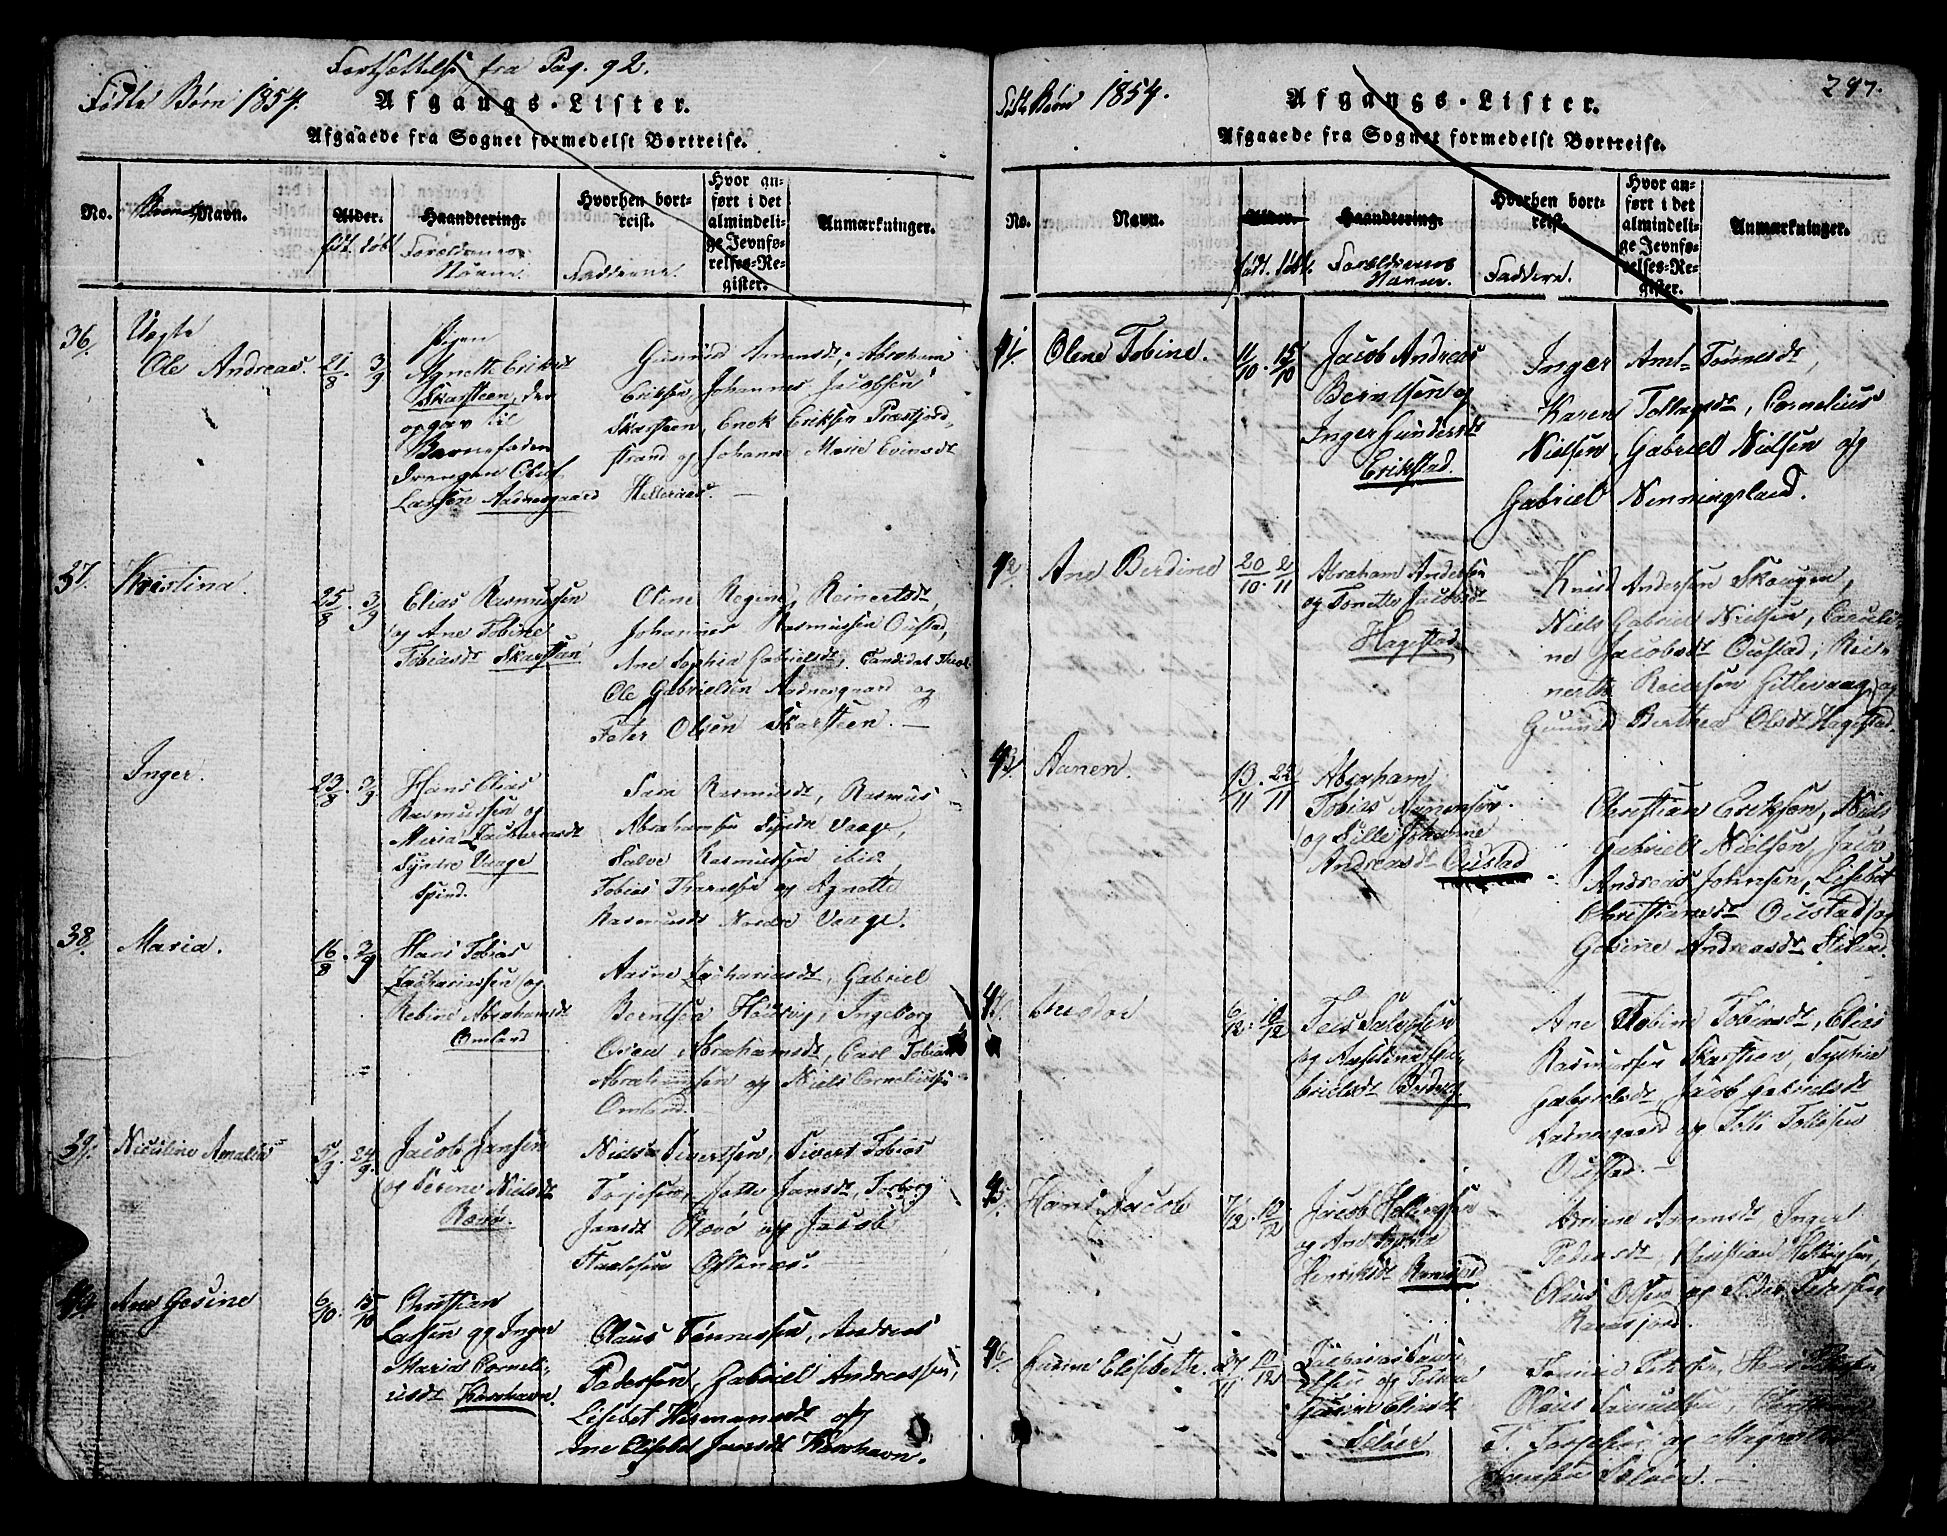 Fortsættelse fra Pag. 92.
Fødte Børn 1854.
Afgangs-Lister.
Afgaaede fra Sognet formedelst Bortreise.
No.
Navn.
Alder.
født. døbt
Haandtering.
Forældrenes
Navne.
Hvorhen bort-
reist.
Faddere.
Hvor an-
ført i det
almindeli-
ge Jevnfø-
relses-Re-
gister.
Anmærkninger.
36.
Uægte
Ole Andreas.
21/8. 3/9
Pigen
Agnette Eriksdt
Skarsteen, der
opgav til
Barnefader
Drengen Oluf
Larsen Aadnesgaard
Gunnild Amundsdt, Abraham
Eriksen, Johannes Jacobsen
Skarsteen, Enok Eriksen Præstjord-
strand og Johanne Marie Evinsdt
Hellesnes.
37.
Kristina.
25/8. 3/9
Elias Rasmussen
og Ane Tobine
Tobiasdt Skarsteen
Oline Regine Reinertsdt,
Johannes Rasmussen Oustad,
Ane Sophia Gabrielsdt, Candidat Theol
Ole Gabrielsen Aadnesgaard og
Peter Olsen Skarsteen.
Inger.
23/8. 3/9
Hans Elias
Rasmussen og
Maria Zachariasdt
Syndre Vaage
Spind.
Sara Rasmusdt, Rasmus
Abrahamsen Syndre Vaage,
Salve Rasmussen ibid,
Tobias Tharelsen og Agnette
Rasmusdt Nordre Vaage.
38.
Maria.
16/8. 3/9
Hans Tobias
Zachariassen og
Rebine Abrahamsdt
Omland
Aasne Zachariasdt, Gabriel
Berntsen Houkvig, Ingeborg
Osea Abrahamsdt, Carl Tobias
Abrahamsen og Niels Corneliussen
Omland.
39.
Nicoline Amalia
5/9. 24/9.
Jacob Jansen
og Serine Nielsdt
Rævø.
Niels Sivertsen, Sivert Tobias
Torjesen, Jotte Jansdt, Torborg
Jansdt Rævø og Jacob
Staalesen Østenæs.
40.
Ane Gesine
6/10. 15/10
Christian
Larsen og Inger
Maria Corneli-
usdt Korshavn.
Claus Tønnessen, Andreas
Pedersen, Gabriel Andreassen,
Lisebet Hermansdt og
Ane Elisebet Jansdt Korshavn.
287.
Født Børn 1854.
Afgangs-Lister.
Afgaaede fra Sognet formedelst Bortreise.
No.
Navn.
Alder.
født. døbt.
Haandtering.
Forældrenes
Navne.
Hvorhen bort-
reist.
Faddere.
Hvor an-
ført i det
almindeli-
ge Jevnfø-
relses-Re-
gister.
Anmærkninger.
41.
Olene Tobine.
11/10. 15/10
Jacob Andreas
Berntsen og
Inger Gundersdt
Erikstad.
Inger Aml. Tønnesdt,
Karen Tollagsdt, Cornelius
Nielsen, Gabriel Nielsen og
Gabriel Nenningsland.
42.
Ane Berdine
20/10. 2/11
Abraham Andersen
og Tonette Jacobsdt
Hagestad.
Knud Andersen Skougen,
Niels Gabriel Nielsen, Caroli-
ne Jacobsdt Oustad, Rei-
nert Reiersen Gitlevaag og
Gunnild Berthea Olsdt Hagestad.
43.
Aanen.
13/11. 22/11
Abraham
Tobias Aanensen
og Sille Johanne
Andreasdt Oustad
Christian Eriksen, Niels
Gabriel Nielsen, Jacob
Andreas Johnsen, Lisebet
Christiansdt Oustad og
Gabine Andreasdt
44.
Theodor
6/12. 10/12
Teis Salvesen
og Aaselina Ga-
brielsdt
Ane Tobine Tobiasdt, Elias
Rasmussen Skarsteen, Sophia
Gabrielsdt, Jacob Gabrielsdt
Aadnesgaard og Tolli Tollisen
Oustad.
45.
Hans Jacob
7/12. 10/12
Jacob Helliesen
og Ane
Henriksdt
Adriane Aanensdt, Inger
Pedersdt, Christian Helliesen,
Claus Olsen og Peder Pedersen
46.
Elisebette.
27/11. 10/12
Zacharias
og
Eliasdt
Seløer
Petersen, Hans
Claus Samuelsen,
T. Torjesen og Magnilde
Jansen Seløer.